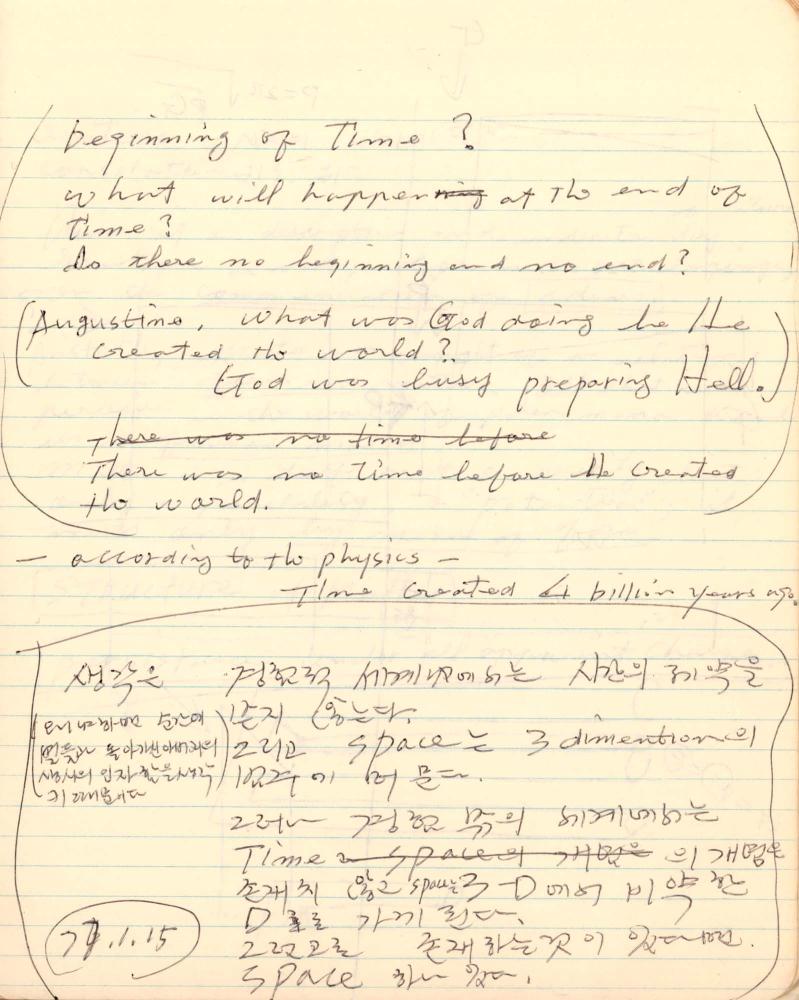 beginning of Time?
what will happen at the end of
time?
Is there no beginning and no end?
(Augustine, what was God doing be He
created the world?
God was busy preparing Hell.)
There was no time before
There was no Time before He created
the world.
— according to the physics —
Time created 4 billion years ago.
생각은 경험적 세계내에서는 시간의 제약을
받지 않는다.
(왜냐하면 순간에
돌아가신 아버지의
생각
키 때문이다)
그리고 space는 3 dimention의
범주에 머문다.
그러나 경험 밖의 세계에서는
Time space의 개념은 의 개념은
존재치 않고 space는 3-D에서 비약한
D로 가게 된다.
그런고로 존재하는것이 있다면.
space 하나 있다.
77.1.15